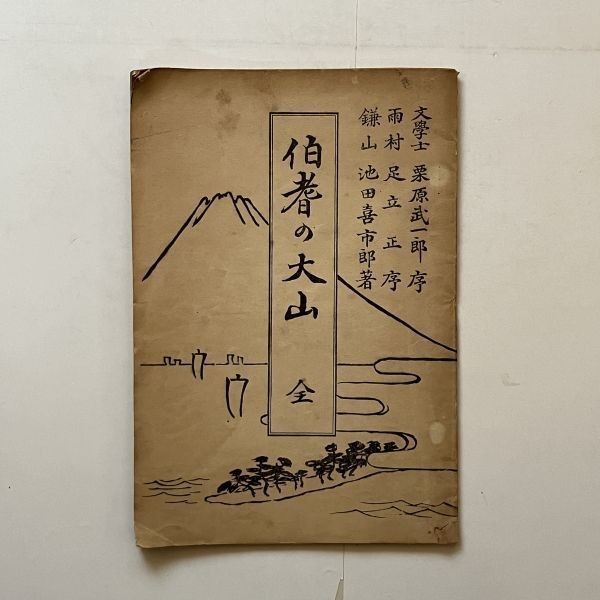 文學士 栗原武一郎 序
雨村 足立正 序
鎌山 池田喜市郎著
伯耆の大山 全